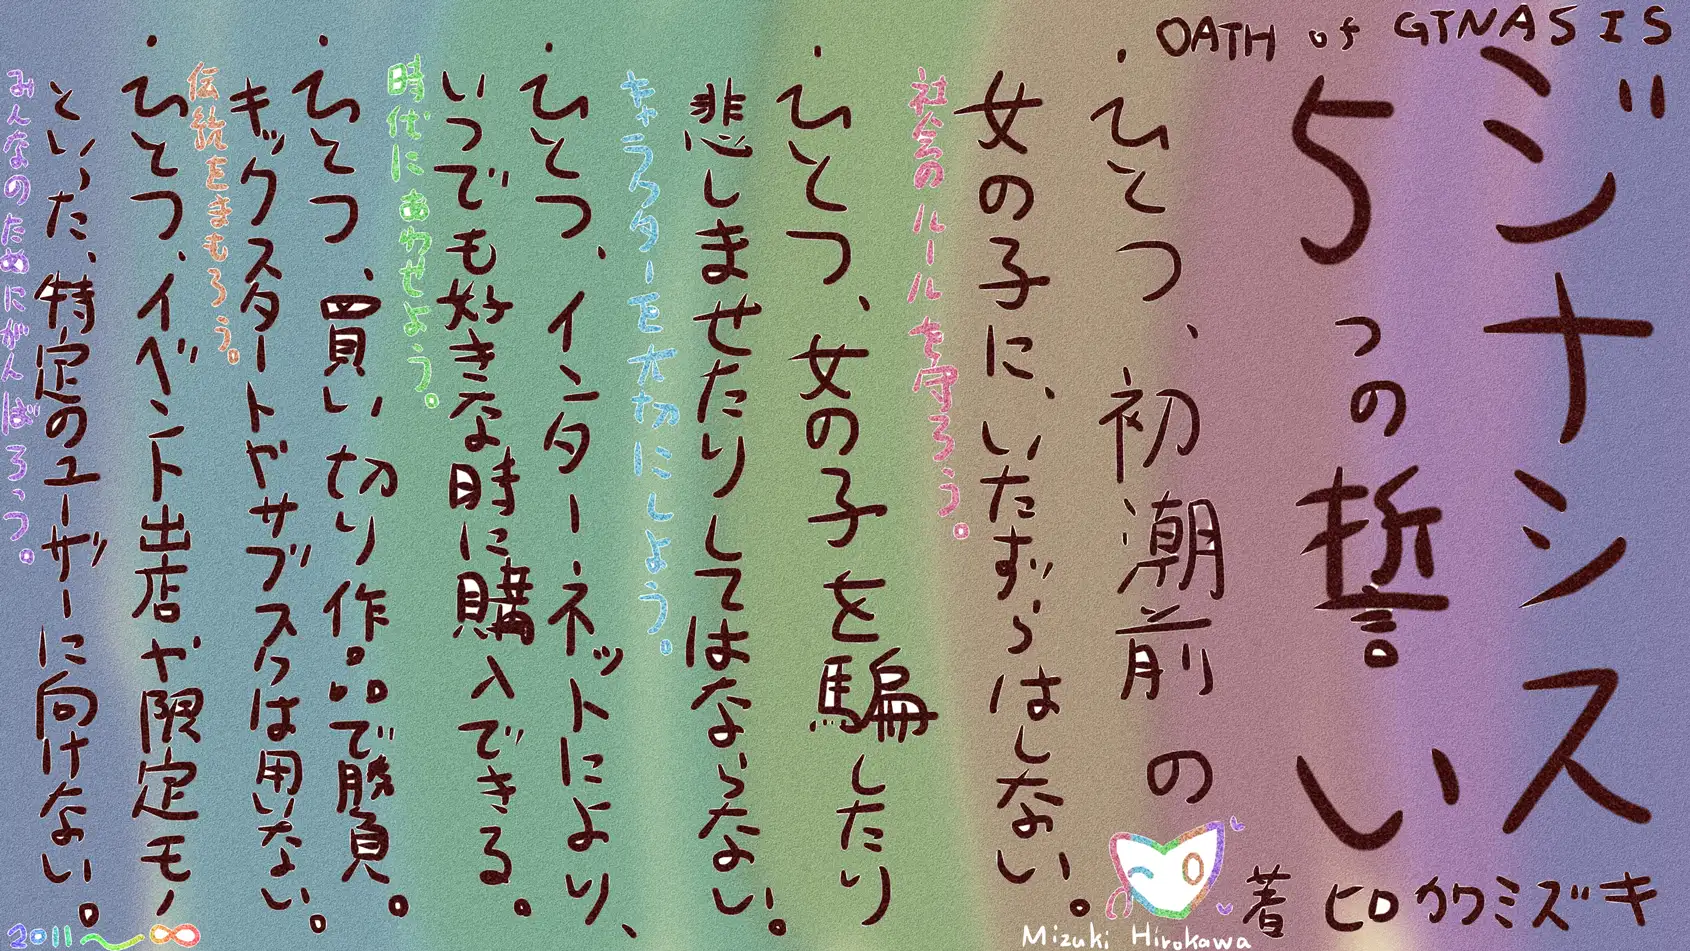 OATH of GINASIS
ジナシス
5つの誓い
著 ヒロカワミズキ
・ひとつ、初潮前の
女の子に、いたずらはしない。
社会のルールを守ろう。
・ひとつ、女の子を騙したり
悲しませたりしてはならない。
キャラクターを大切にしよう。
・ひとつ、インターネットにより、
いつでも好きな時に購入できる。
時代にあわせよう。
・ひとつ、買い切り作品で勝負。
キックスタートやサブスクは用いない。
伝統をまもろう。
・ひとつ、イベント出店や限定モノ
といった、特定のユーザーに向けない。
みんなのためにがんばろう。
Mizuki Hirokawa
2011〜∞